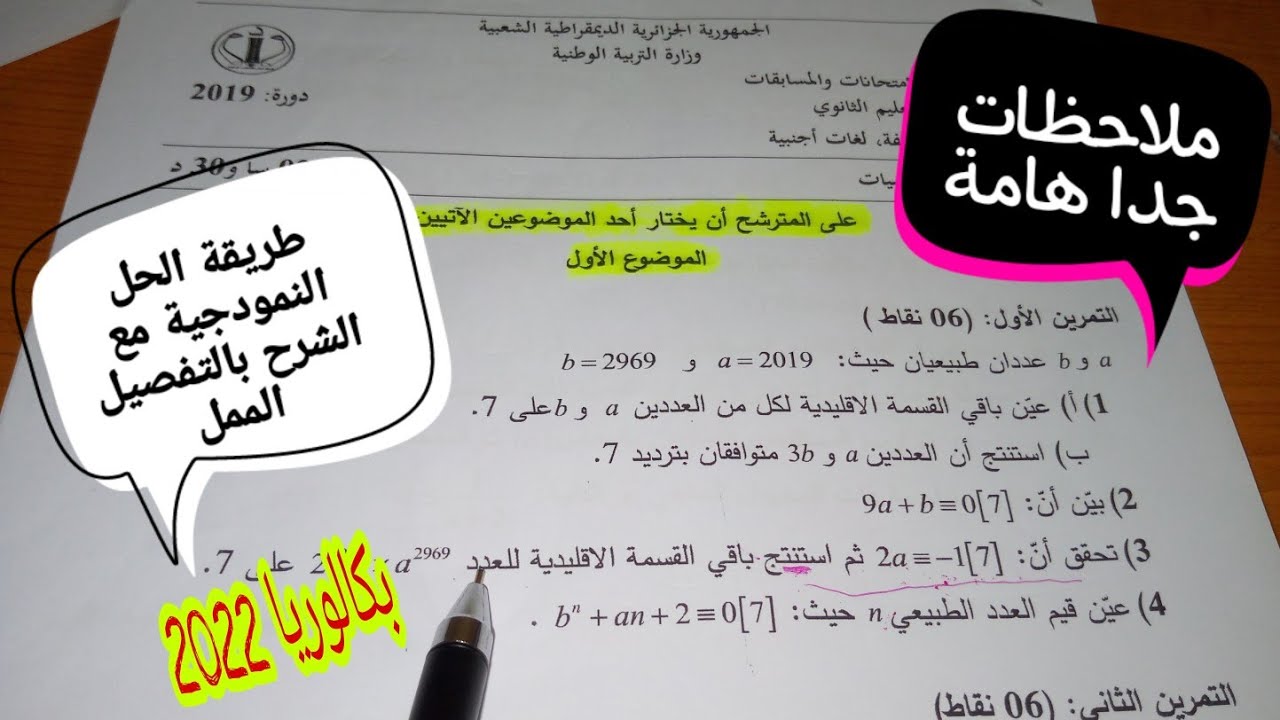 الجمهورية الجزائرية الديمقراطية الشعبية
وزارة التربية الوطنية
والمسابقات
الثانوي
لغات أجنبية
دورة: 2019
و30 د
على المترشح أن يختار أحد الموضوعين الآتيين
الموضوع الأول
التمرين الأول: (06 نقاط)
a و b عددان طبيعيان حيث: a = 2019 و b = 2969
1) أ) عيّن باقي القسمة الاقليدية لكل من العددين a و b على 7.
ب) استنتج أن العددين a و 3b متوافقان بترديد 7.
2) بيّن أنّ: 9a + b ≡ 0[7]
3) تحقق أنّ: 2a ≡ −1[7] ثم استنتج باقي القسمة الاقليدية للعدد a^2969 على 7.
4) عيّن قيم العدد الطبيعي n حيث: b^n + an + 2 ≡ 0[7] .
التمرين الثاني: (06 نقاط)
ملاحظات
جدا هامة
طريقة الحل
النمودجية مع
الشرح بالتفصيل
الممل
بكالوريا 2022